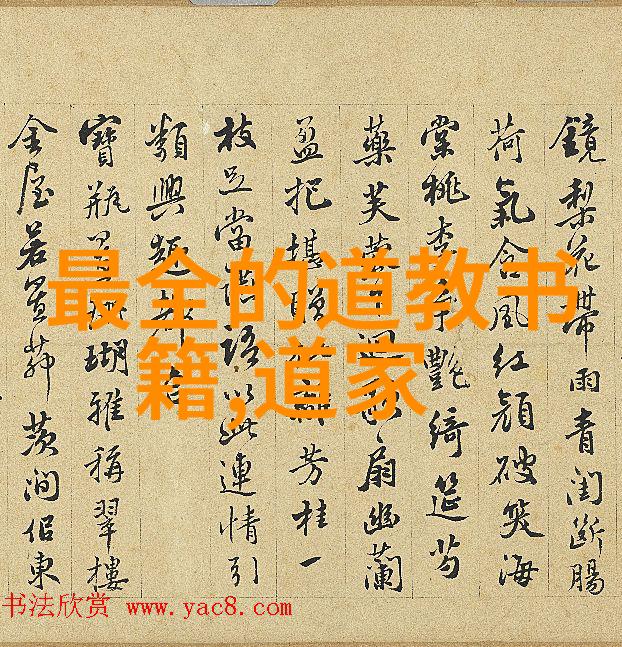 鏡梨花帶雨青閨斷腸
荷氣含風紅顏破笑海
棠桃李爭艷綺筵芍
藥芙蓉扇幽蘭
盈把堪贈芳桂一
枝足當語以此連情引
類興趣
寶瓶瑚雅稱翠樓
金屋若置茆茨澗侶東
最全的道教书
籍,道家
书法欣赏 www.yac8.com